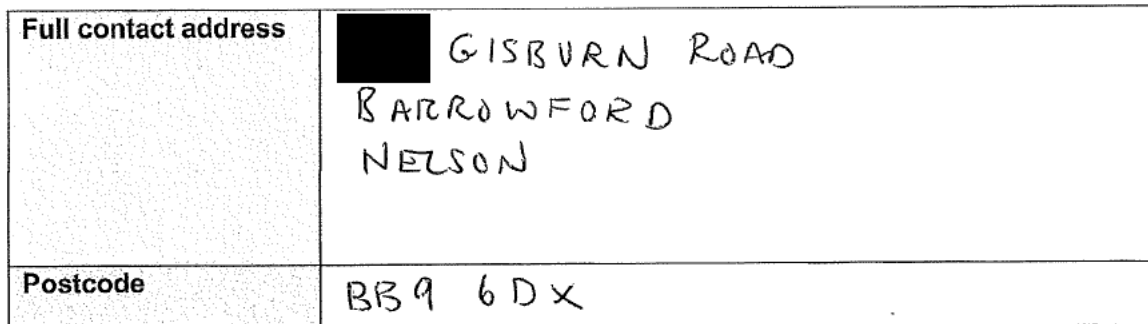 Full contact address
GISBURN ROAD
BARROWFORD
NELSON
Postcode
BB9 6DX